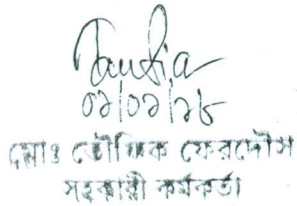 Taufia
০১/০১/২৮
মোঃ তৌফিক ফেরদৌস
সহকারী কর্মকর্তা